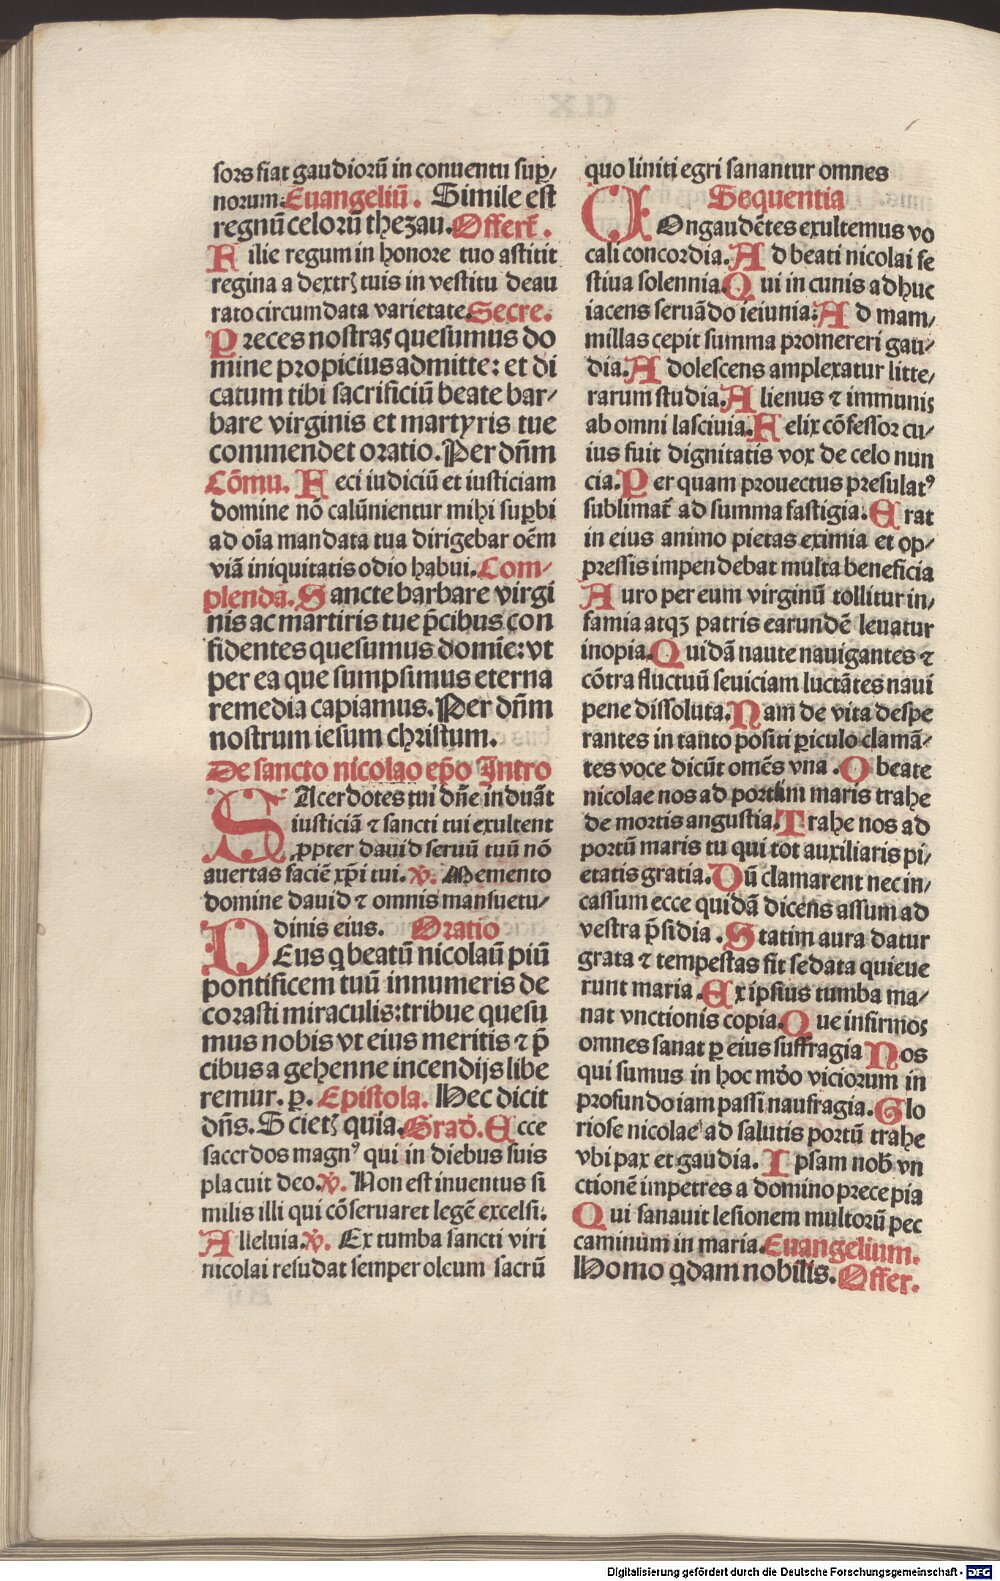 sors fiat gaudiorū in conuentu sup̄/
norum: Euangeliū. Simile est
regnū celorū thezau. Offert̄.
Filie regum in honore tuo astitit
regina a dextrꝫ tuis in vestitu deau
rato circumdata varietate. Secre.
Preces nostras quesumus do
mine propicius admitte: et di
catum tibi sacrificiū beate bar/
bare virginis et martyris tue
commendet oratio. Per dn̄m
Cōmu. Feci iudiciū et iusticiam
domine nō calūnientur mihi sup̄bi
ad oīa mandata tua dirigebar oēm
viā iniquitatis odio habui. Com/
plenda. Sancte barbare virgi
nis ac martiris tue p̄cibus con
fidentes quesumus domīe: vt
per ea que sumpsimus eterna
remedia capiamus. Per dn̄m
nostrum iesum christum.
De sancto nicolao ep̄o Intro
SAcerdotes tui dn̄e induāt
iusticiā ⁊ sancti tui exultent
ꝓpter dauid seruū tuū nō
auertas faciē xp̄i tui. ꝟ. Memento
domine dauid ⁊ omnis mansuetu/
dinis eius. Oratio
DEus q̄ beatū nicolaū piū
pontificem tuū innumeris de
corasti miraculis: tribue quesu
mus nobis vt eius meritis ⁊ p̄
cibus a gehenne incendijs libe
remur. ꝑ. Epistola. Hec dicit
dn̄s. Scietꝫ quia. Grad̄. Ecce
sacerdos magnꝰ qui in diebus suis
placuit deo. ꝟ. Non est inuentus si
milis illi qui cōseruaret legē excelsi.
Alleluia. ꝟ. Ex tumba sancti viri
nicolai resudat semper oleum sacrū
quo liniti egri sanantur omnes
Sequentia
COngaudētes exultemus vo
cali concordia. Ad beati nicolai fe
stiua solennia. Qui in cunis adhuc
iacens seruādo ieiunia: Ad mam/
millas cepit summa promereri gau/
dia. Adolescens amplexatur litte/
rarum studia. Alienus ⁊ immunis
ab omni lasciuia. Felix cōfessor cu/
ius fuit dignitatis vox de celo nun
cia. Per quam prouectus presulatꝰ
sublimat̄ ad summa fastigia. Erat
in eius animo pietas eximia et op/
pressis impendebat multa beneficia
Auro per eum virginū tollitur in/
famia atqꝫ patris earundē leuatur
inopia. Quidā naute nauigantes ⁊
cōtra fluctuū seuiciam luctātes naui
pene dissoluta. Nam de vita despe
rantes in tanto positi ꝑiculo clamā/
tes voce dicūt omēs vna. O beate
nicolae nos ad portum maris trahe
de mortis angustia. Trahe nos ad
portū maris tu qui tot auxiliaris pi/
etatis gratia. Dū clamarent nec in/
cassum ecce quidā dicens assum ad
vestra p̄sidia. Statim aura datur
grata ⁊ tempestas fit sedata quieue
runt maria. Ex ipsius tumba ma/
nat vnctionis copia. Que infirmos
omnes sanat ꝑ eius suffragia Nos
qui sumus in hoc mūdo viciorum in
profundo iam passi naufragia. Glo
riose nicolae ad salutis portū trahe
vbi pax et gaudia. Ipsam nob̄ vn
ctionē impetres a domino prece pia
Qui sanauit lesionem multorū pec
caminum in maria. Euangelium.
Homo q̄dam nobilis. Offer.
Digitalisierung gefördert durch die Deutsche Forschungsgemeinschaft - DFG